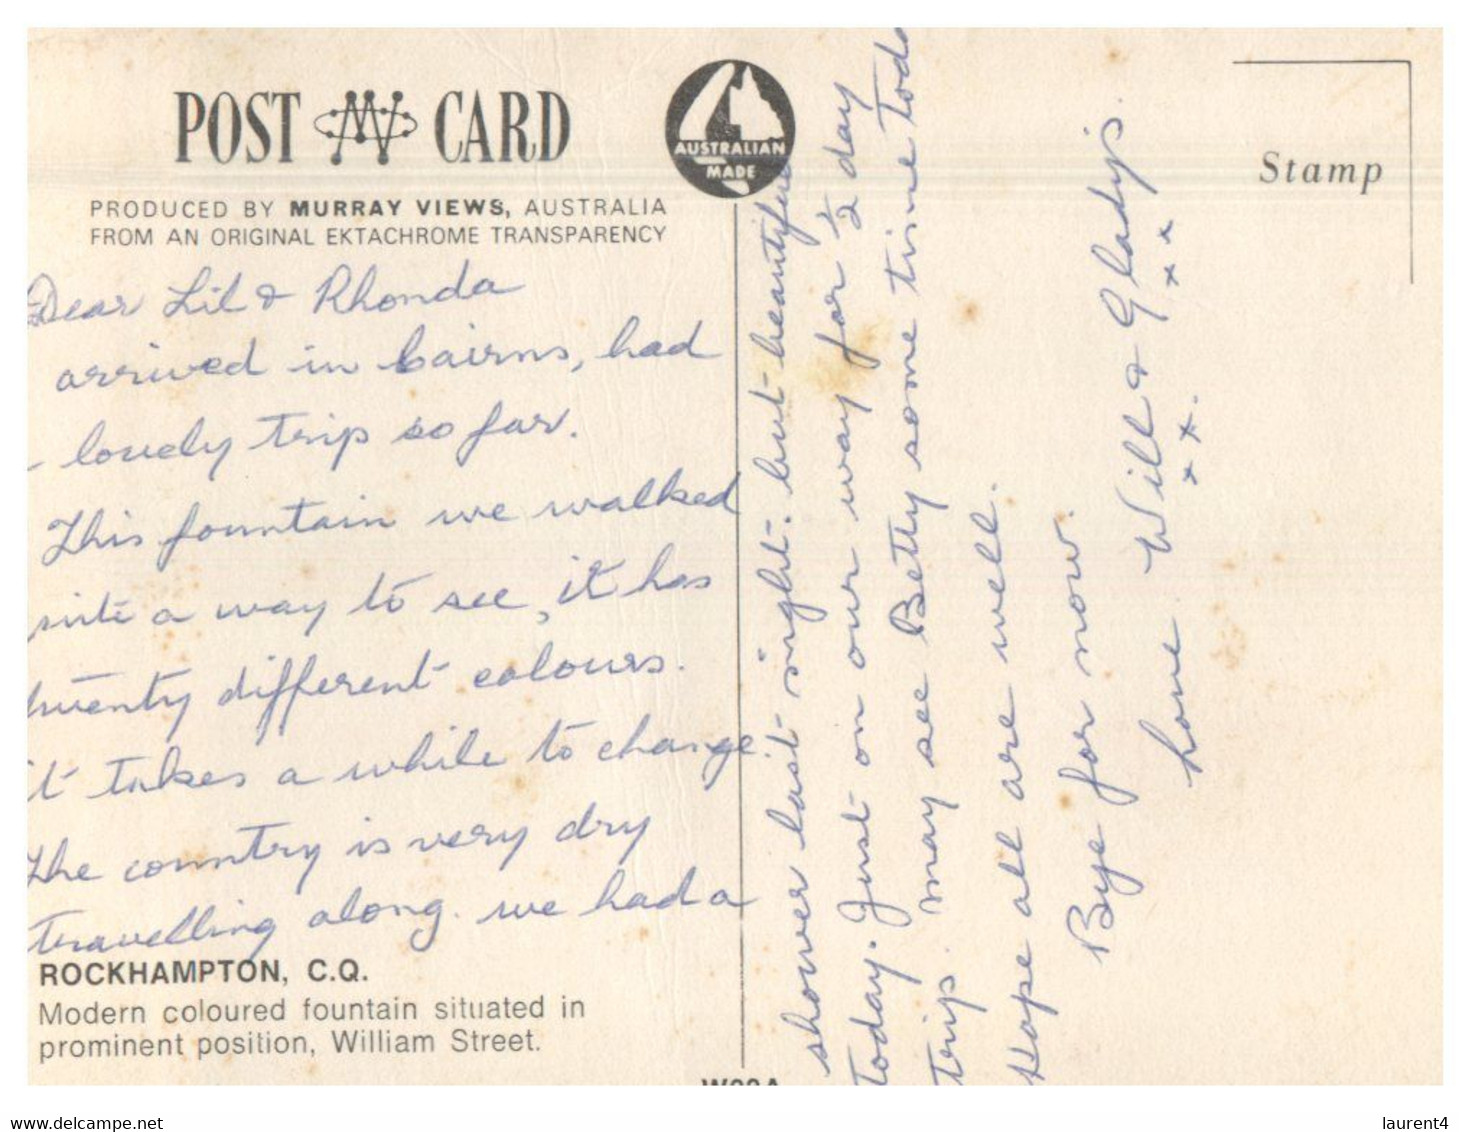 POST CARD
AUSTRALIAN
MADE
PRODUCED BY MURRAY VIEWS, AUSTRALIA
FROM AN ORIGINAL EKTACHROME TRANSPARENCY
Stamp
Dear Lil & Rhonda
arrived in Cairns, had
lovely trip so far.
This fountain we walked
quite a way to see, it has
twenty different colours.
it takes a while to change
The country is very dry
travelling along. we had a
ROCKHAMPTON, C.Q.
Modern coloured fountain situated in
prominent position, William Street.
shower last night. but beautiful
today. Just on our way for ½ day
trip. may see Betty some time today
Hope all are well.
Bye for now.
love Will & Gladys.
x x. x x
www.delcampe.net
laurent4